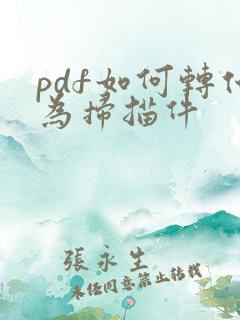 pdf如何轉化
為掃描件
張永生
未經同意禁止轉載